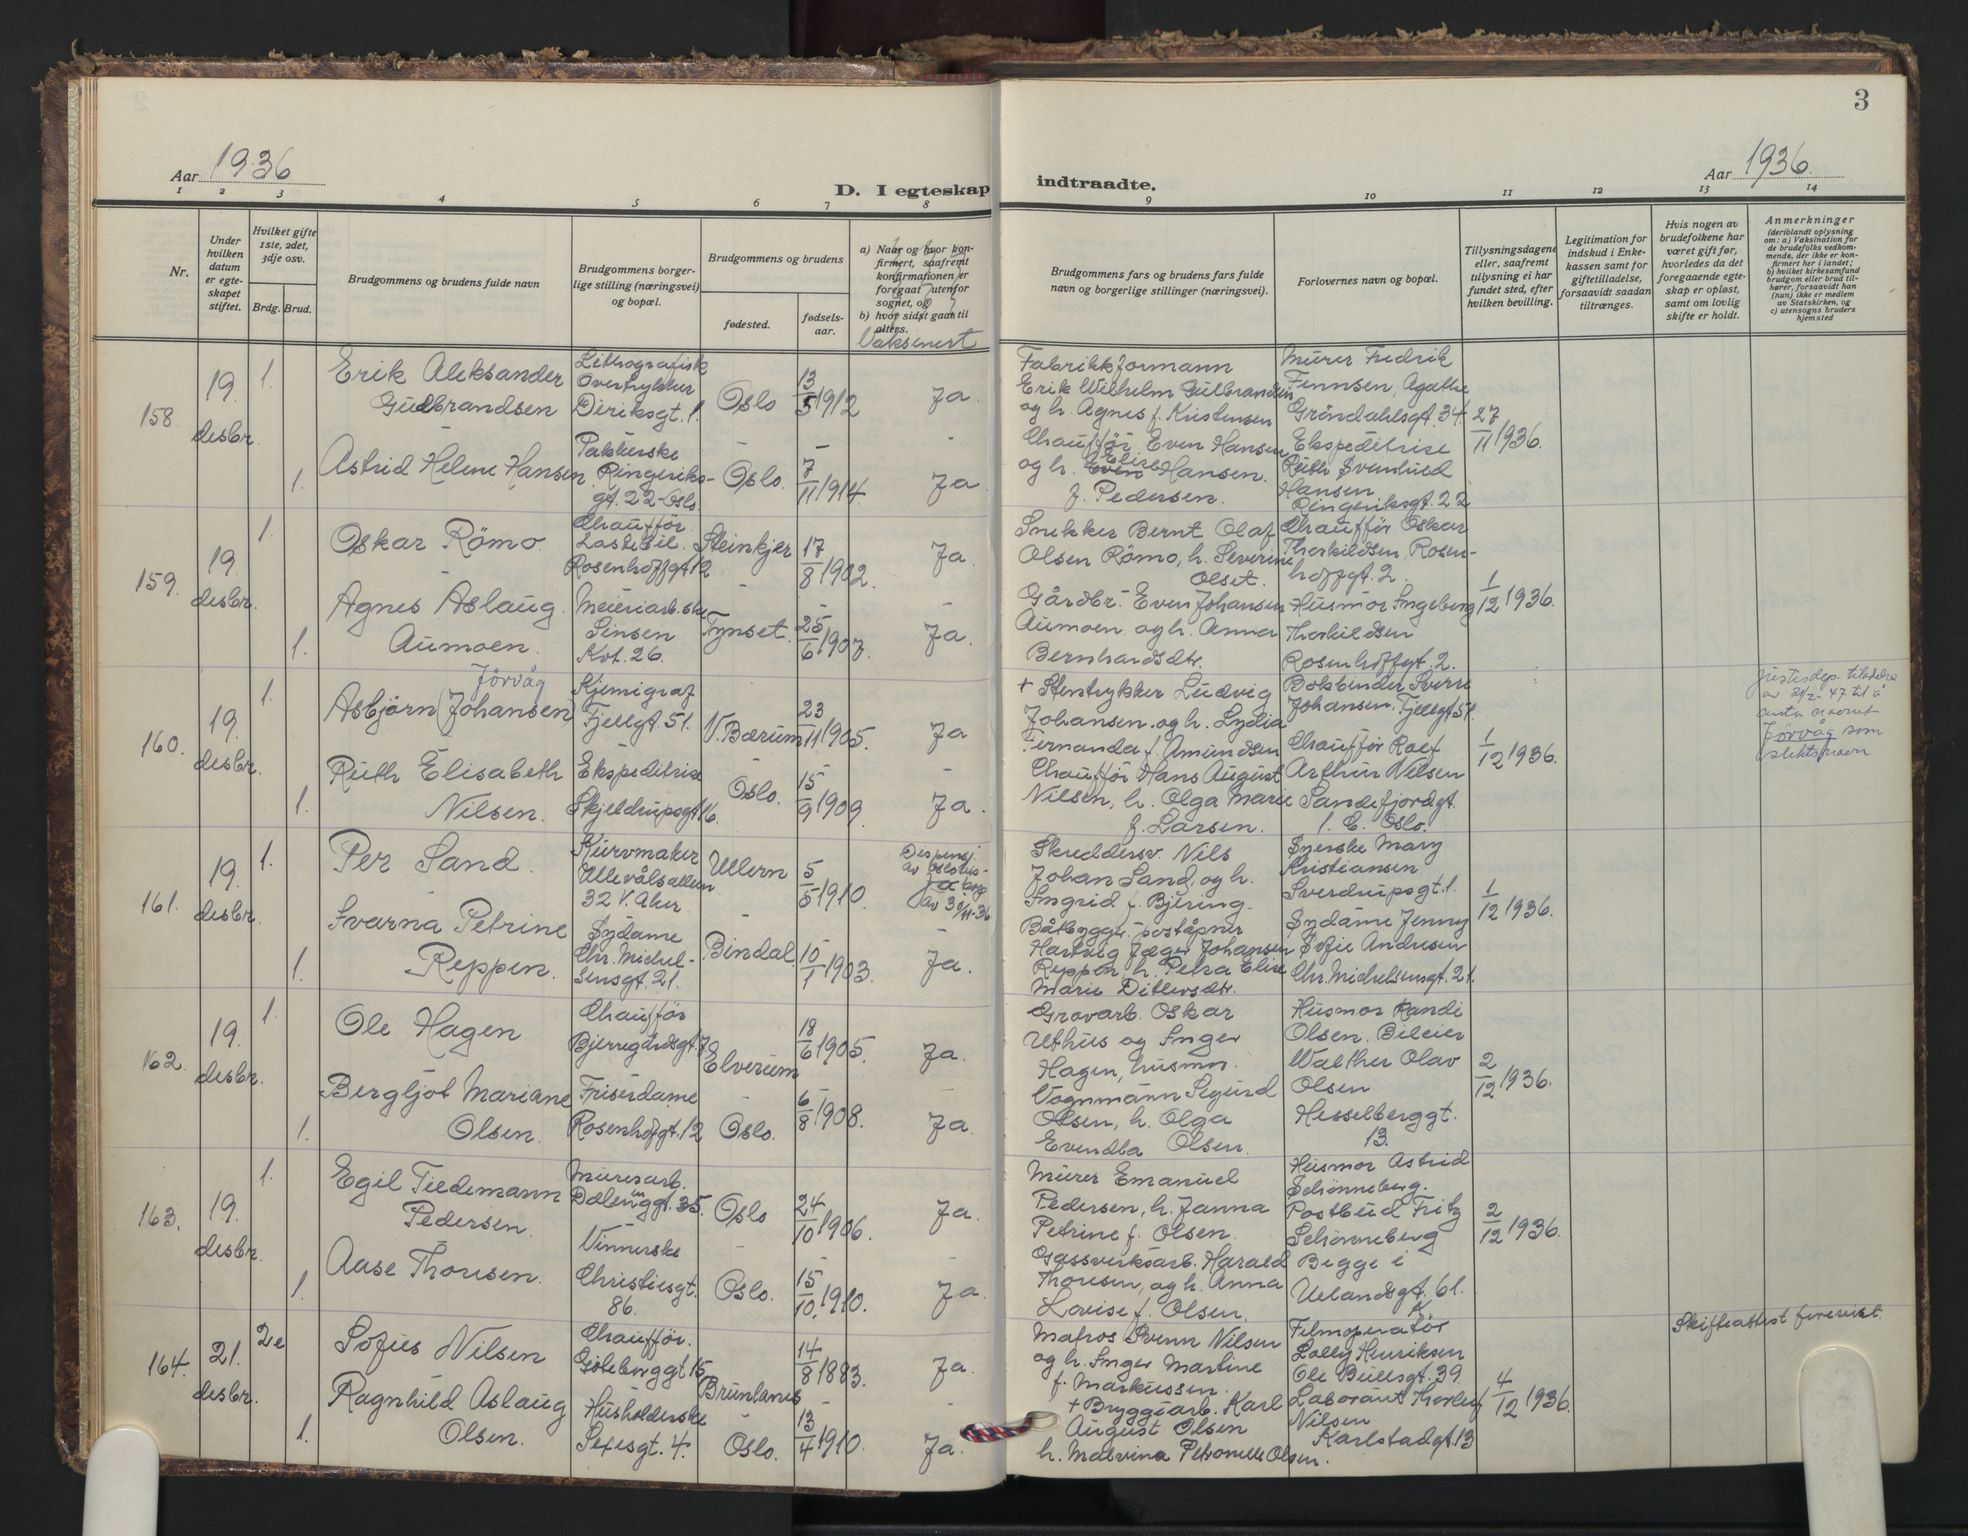 3
Aar 1936
D. I egteskap indtraadte.
Aar 1936.
1 2 3 4 5 6 7 8 9 10 11 12 13 14
Nr.
Under hvilken datum er egteskapet stiftet.
Hvilket gifte 1ste, 2det, 3dje osv.
Brdg. Brud.
Brudgommens og brudens fulde navn
Brudgommens borgerlige stilling (næringsvei) og bopæl.
Brudgommens og brudens
fødested.
fødselsaar.
a) Naar og hvor konfirmert, saafremt konfirmationen er foregaat utenfor sognet, og
b) hvor sidst gaat til alters.
Vaksinert
Brudgommens fars og brudens fars fulde navn og borgerlige stillinger (næringsvei).
Forlovernes navn og bopæl.
Tillysningsdagene eller, saafremt tillysning ei har fundet sted, efter hvilken bevilling.
Legitimation for indskud i Enkekassen samt for giftetilladelse, forsaavidt saadan tiltrænges.
Hvis nogen av brudefolkene har været gift før, hvorledes da det foregaaende egteskap er opløst, samt om lovlig skifte er holdt.
Anmerkninger (deriblandt oplysning om: a) Vaksination for de brudefolks vedkommende, der ikke er konfirmert her i landet; b) hvilket kirkesamfund brudgom eller brud tilhører, forsaavidt han (hun) ikke er medlem av Statskirken, og c) utensogns bruders hjemsted
158.
19. desbr.
1.
Erik Aleksander
Gulbrandsen
Lithografisk
Overtrykker
Diriksgt. 1.
Oslo
13/5 1912
Ja.
1.
Astrid Helene Hansen
Pakkerske
Ringeriks-
gt. 22 - Oslo.
Oslo.
7/11 1914.
Ja.
Fabrikkformann
Erik Wilhelm Gulbrandsen
og h. Agnes f. Kristensen
Chauffør Even Hansen
og h. Elise Hansen.
f. Pedersen.
Murer Fredrik
Finnsen, Agathe
Grøndahlsgt. 34.
Ekspeditrise
Ruth Svanhild
Hansen
Ringeriksgt. 22
27/11 1936.
159.
19. desbr.
1.
Oskar Römo
Chauffør
Lastebil.
Rosenhoffgt. 12
Steinkjer
17/8 1902.
Ja.
1.
Agnes Aslaug
Aumoen.
Meieriarb.ske
Sinsen
Kvt. 26.
Tynset.
25/6 1907.
Ja.
Snekker Bernt Olaf
Olsen Römo, h. Severine
Olset.
Gårdbr. Even Johansen
Aumoen og h. Anna
Bernhardsdtr.
Chauffør Oskar
Thorkildsen, Rosen-
hoffgt. 2.
Husmor Ingeborg
Thorkildsen
Rosenhoffgt. 2.
1/12 1936.
160.
19. desbr.
1.
Jörvåg
Asbjörn (Johansen)
Kjemigraf
Fjellgt 51.
V. Bærum
23/11 1905.
Ja
1.
Ruth Elisabeth
Nilsen.
Ekspeditrise
Skjeldrupsgt 16.
Oslo.
15/9 1909.
Ja.
+ Stentrykker Ludvig
Johansen. og h. Lydia
Fernanda f. Amundsen
Chauffør Hans August
Nilsen, h. Olga Marie
f. Larsen.
Bokbinder Sverre
Johansen. Fjellgt 51.
Chauffør Rolf
Arthur Nilsen
Sandefjordgt.
1. C. Oslo.
1/12 1936.
Jörvåg som
slektsnavn
161.
19. desbr.
1.
Per Sand.
Kurvmaker
Ullevålsalleen
32 V. Aker
Ullern
5/5 1910.
1.
Svarna Petrine
Reppen.
Sydame
Chr. Michel-
sensgt. 21.
Bindal.
10/1 1903.
Ja.
Skreddersv. Nils
Johan Sand, og h.
Ingrid f. Bjering.
Båtbygger. poståpner
Hartvig Jæger Johansen
Reppen, h. Petra Elise
Marie Ditlevsdtr.
Syerske Mary
Kristiansen
Sverdrupsgt. 1.
Sydame Jenny
Sofie Andresen
Chr. Michelsensgt. 21.
1/12 1936.
162.
19. desbr.
1.
Ole Hagen
Chauffør
Bjerregårdsgt. 7
Elverum
18/6 1905.
Ja.
1.
Bergljot Mariane
Olsen.
Friserdame
Rosenhofgt. 12
Oslo.
6/8 1908.
Ja.
Grovarb. Oskar
Uthus og Inger
Hagen, husmor.
Vognmann Sigurd
Olsen, h. Olga
Evendba Olsen.
Husmor Randi
Olsen. Bileier
Walther Olav
Olsen
Hesselberggt.
13.
2/12 1936.
163.
19. desbr.
1.
Egil Tiedemann
Pedersen.
Murerarb.
Dælenenggt. 35.
Oslo
24/10 1906.
Ja.
1.
Aase Thousen.
Vinnerske
Christiesgt.
86.
Oslo.
15/10. 1910.
Ja.
Murer Emanuel
Pedersen, h. Janna
Petrine f. Olsen.
Gassverksarb. Harald
Thousen, og h. Anna
Lovise f. Olsen.
Husmor Astrid
Schönneberg.
Postbud Fritz
Schönneberg
Begge i
Uelandsgt. 61.
2/12 1936.
164.
21. desbr.
2e
Sofus Nilsen
Chauffør.
Göteborggt 15
Brunlanes
14/8 1883.
Ja.
1.
Ragnhild Aslaug
Olsen.
Husholderske
Sexesgt. 4.
Oslo.
13/4 1910.
Ja.
Matros Svenn Nilsen
og h. Inger Martine
f. Markussen.
+ Bryggearb. Karl
August Olsen
h. Malvina Petronelle Olsen.
Filmoperatør
Lolly Henriksen
Ole Bullsgt. 39.
Laborant Thorleif
Nilsen
Karlstadgt. 13
4/12 1936.
Skifteattest forevist.